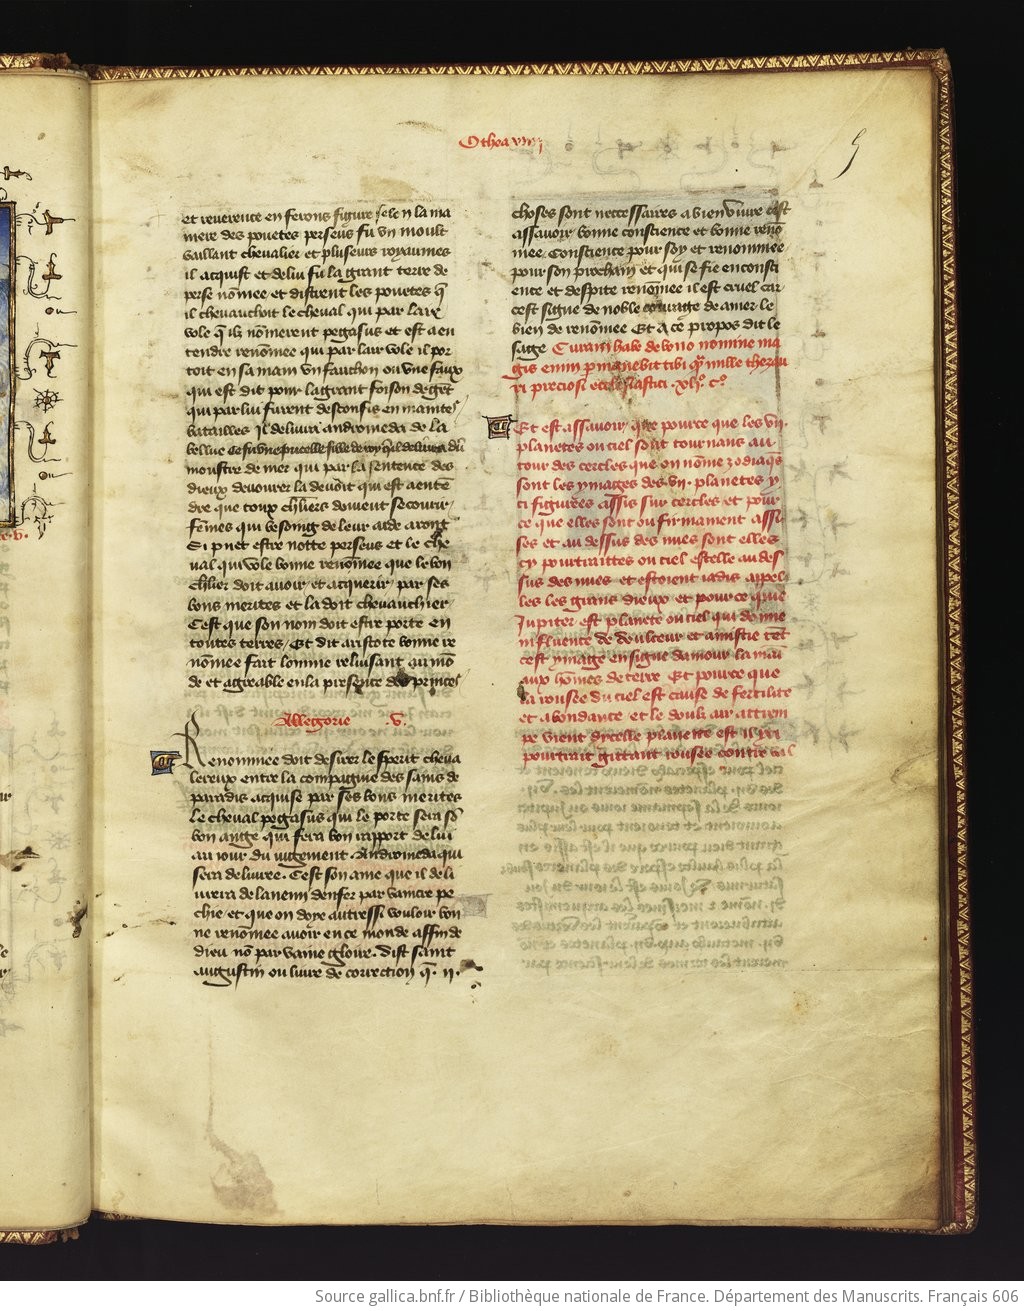 Othea viiij
5
et reverence en ferons figure selon la ma
niere des pouetes perseus fu un moult
vaillant chevalier et plusieurs royaumes
il acquist et de lui fu la grant terre de
perse nõmee et distrent les pouetes q̃
il chevauchoit le cheval qui par l'air
vole q̃ ilz nõmerent pegasus et est a en
tendre renõmee qui par lair vole il por
toit en sa main un fauchon ou une faux
qui est dit pour la grant foison de gẽt
qui par lui furent desconfis en maintes
batailles Il delivra andromeda de la
bellue Ce fu une pucelle fille de roy qͥl delivra du
monstre de mer qui par la sentence des
dieux devourer la devoit qui est a entẽ
dre que touz chlĩers doivent secourir
fẽmes qui besoing de leur aide aront
Si puet estre notte perseus et le che
val qui vole bonne renõmee que le bon
chlĩer doit avoir et acquerir par ses
bons merites et la doit chevauchier
Cest que son nom doit estre porte en
toutes terres Et dit aristote bonne re
nõmee fait lomme reluisant au mõ
de et agreable en la presence des princes
Allegorie .v.
Renommee doit desirer le sperit cheva
lereux entre la compagnie des sains de
paradis acquise par ses bons merites
Le cheval pegasus qui le porte sera sõ
bon ange qui fera bon rapport de lui
au jour du jugement Andromeda qui
sera delivree Cest son ame que il deli
vrera de lanemi denfer par vaincre pe
chie et que on doye autressi vouloir bon
ne renõmee avoir en ce monde affin de
dieu nõ par vaine gloire Dist saint
augustin ou livre de correction q̃ .ii.
choses sont neccessaires a bien vivre cest
assavoir bonne conscience et bonne renõ
mee Conscience pour soy et renommee
pour son prochain et qui se fie en consci
ence et despite renõmee il est cruel car
cest signe de noble courage de amer le
bien de renõmee Et a ce propos dit le
sage Curam habe de bono nomine ma
gis enim p̃manebit tibi q̃ mille thezau
ri preciosi ecclesiastici xlj.º c.º
Et est assavoir que pource que les vii.
planetes ou ciel sont tournans au
tour des cercles que on nõme zodiaq̃s
sont les ymages des .vii. planetes y
ci figurees assis sur cercles et pour
ce que elles sont ou firmament assi
ses et au dessus des nues sont elles
cy pourtraittes ou ciel estelle au des
sus des nues et estoient jadis appel
les les grans dieux et pource que
Jupiter est planete ou ciel qui donne
influence de doulceur et amistie tẽt
cest ymage en signe damour la main
aux hõmes de terre Et pource que
la rousee du ciel est cause de fertilite
et abondance et le doulz air attrem
pe vient dicelle planette est il cy
pourtrait gittant rousee contreval
Source gallica.bnf.fr / Bibliothèque nationale de France. Département des Manuscrits. Français 606